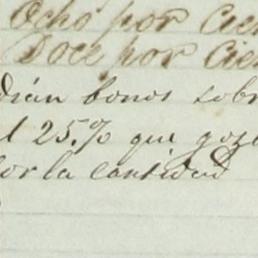 Ocho por Cien
Doce por Cien
dián bonos sobr
l 25% que goz
por la cantidad